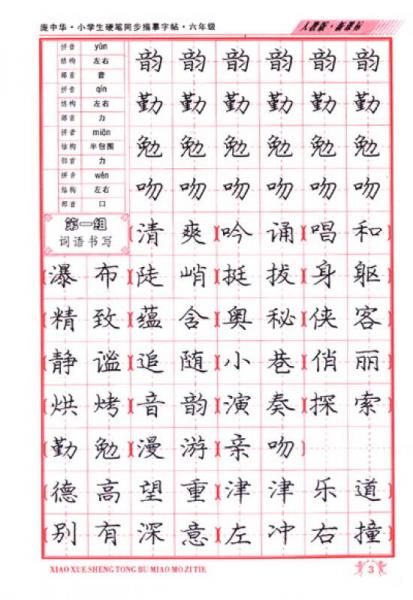 庞中华·小学生硬笔同步描摹字帖·六年级 人教版·新课标
拼音 yùn
结构 左右
部首 音
韵 韵 韵 韵 韵 韵
拼音 qín
结构 左右
部首 力
勤 勤 勤 勤 勤 勤
拼音 miǎn
结构 半包围
部首 力
勉 勉 勉 勉 勉 勉
拼音 wěn
结构 左右
部首 口
吻 吻 吻 吻 吻 吻
第一组
词语书写
(清 爽)(吟 诵)(唱 和)
(瀑 布)(陡 峭)(挺 拔)(身 躯)
(精 致)(蕴 含)(奥 秘)(侠 客)
(静 谧)(追 随)(小 巷)(俏 丽)
(烘 烤)(音 韵)(演 奏)(探 索)
(勤 勉)(漫 游)(亲 吻)
(德 高 望 重)(津 津 乐 道)
(别 有 深 意)(左 冲 右 撞)
XIAO XUE SHENG TONG BU MIAO MO ZI TIE
3